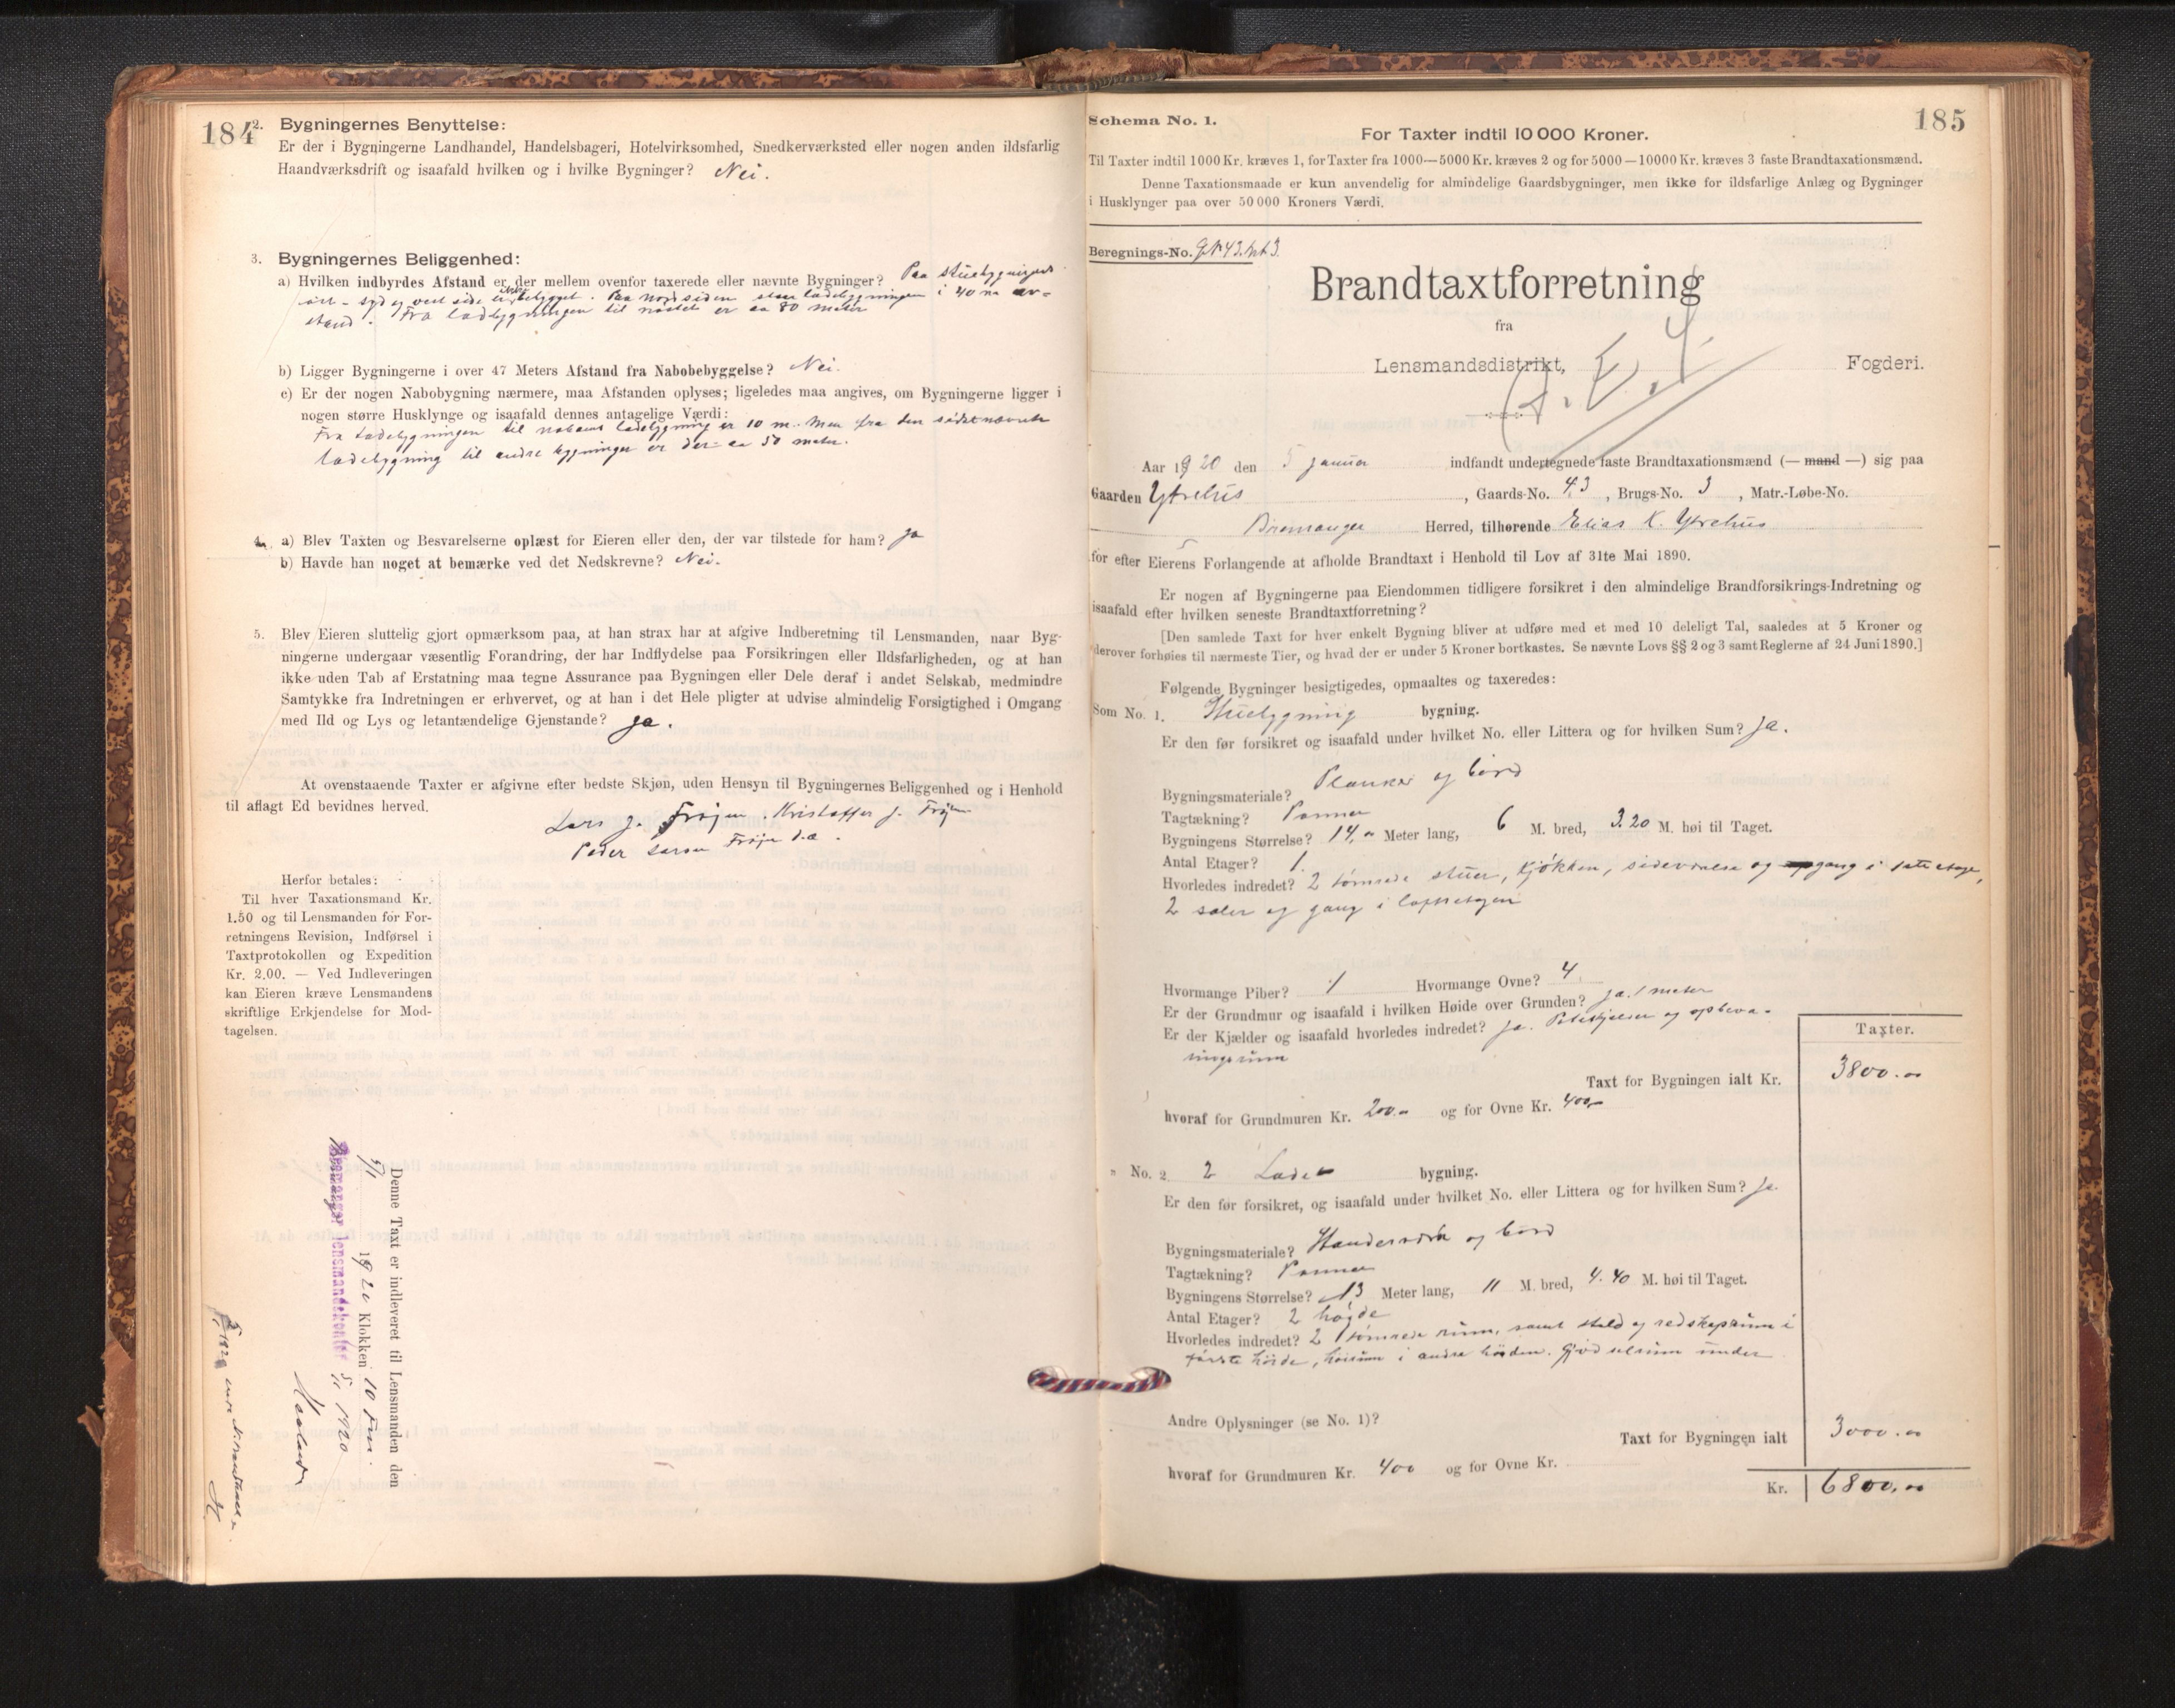 184
2. Bygningernes Benyttelse:
Er der i Bygningerne Landhandel, Handelsbageri, Hotelvirksomhed, Snedkerværksted eller nogen anden ildsfarlig
Haandværksdrift og isaafald hvilken og i hvilke Bygninger? Nei.
3. Bygningernes Beliggenhed:
a) Hvilken indbyrdes Afstand er der mellem ovenfor taxerede eller nævnte Bygninger? Paa stuebygningens
öst - syd og vest side er ikke bebygget. Paa nordsiden staar ladebygningen i 40 m av-
stand. Fra ladbygningen til nöstet er ca 80 meter
b) Ligger Bygningerne i over 47 Meters Afstand fra Nabobebyggelse? Nei.
c) Er der nogen Nabobygning nærmere, maa Afstanden oplyses; ligeledes maa angives, om Bygningerne ligger i
nogen større Husklynge og isaafald dennes antagelige Værdi:
Fra ladebygningen til naboens ladebygning er 10 m. Men fra den sidstnævnte
ladebygning til andre bygninger er der ca 50 meter.
4. a) Blev Taxten og Besvarelserne oplæst for Eieren eller den, der var tilstede for ham? ja
b) Havde han noget at bemærke ved det Nedskrevne? Nei.
5. Blev Eieren sluttelig gjort opmærksom paa, at han strax har at afgive Indberetning til Lensmanden, naar Byg-
ningerne undergaar væsentlig Forandring, der har Indflydelse paa Forsikringen eller Ildsfarligheden, og at han
ikke uden Tab af Erstatning maa tegne Assurance paa Bygningen eller Dele deraf i andet Selskab, medmindre
Samtykke fra Indretningen er erhvervet, og at han i det Hele pligter at udvise almindelig Forsigtighed i Omgang
med Ild og Lys og letantændelige Gjenstande? ja.
At ovenstaaende Taxter er afgivne efter bedste Skjøn, uden Hensyn til Bygningernes Beliggenhed og i Henhold
til aflagt Ed bevidnes herved.
Lars J. Fröjen. Kristoffer J. Fröjen
Peder Larsen Fröjen
Herfor betales:
Til hver Taxationsmand Kr.
1.50 og til Lensmanden for For-
retningens Revision, Indførsel i
Taxtprotokollen og Expedition
Kr. 2.00. — Ved Indleveringen
kan Eieren kræve Lensmandens
skriftlige Erkjendelse for Mod-
tagelsen.
Denne Taxt er indleveret til Lensmanden den
5/1 1920 Klokken 10 Fm.
Bremanger lensmandskontor 5/1 1920
185
Schema No. 1.
For Taxter indtil 10 000 Kroner.
Til Taxter indtil 1000 Kr. kræves 1, for Taxter fra 1000—5000 Kr. kræves 2 og for 5000—10000 Kr. kræves 3 faste Brandtaxationsmænd.
Denne Taxationsmaade er kun anvendelig for almindelige Gaardsbygninger, men ikke for ildsfarlige Anlæg og Bygninger
i Husklynger paa over 50 000 Kroners Værdi.
Beregnings-No. G.No 43. br. 3.
Brandtaxtforretning
fra
Lensmandsdistrikt, Fogderi.
Aar 1920 den 5 januar indfandt undertegnede faste Brandtaxationsmænd (— mand —) sig paa
Gaarden Ytrehus, Gaards-No. 43, Brugs-No. 3, Matr.-Løbe-No.
Bremanger Herred, tilhørende Elias K. Ytrehus
for efter Eierens Forlangende at afholde Brandtaxt i Henhold til Lov af 31te Mai 1890.
Er nogen af Bygningerne paa Eiendommen tidligere forsikret i den almindelige Brandforsikrings-Indretning og
isaafald efter hvilken seneste Brandtaxtforretning?
[Den samlede Taxt for hver enkelt Bygning bliver at udføre med et med 10 deleligt Tal, saaledes at 5 Kroner og
derover forhøies til nærmeste Tier, og hvad der er under 5 Kroner bortkastes. Se nævnte Lovs §§ 2 og 3 samt Reglerne af 24 Juni 1890.]
Følgende Bygninger besigtigedes, opmaaltes og taxeredes:
Som No. 1. Stuebygning bygning.
Er den før forsikret og isaafald under hvilket No. eller Littera og for hvilken Sum? ja.
Bygningsmateriale? Planker og bord
Tagtækning? Panner
Bygningens Størrelse? 14,00 Meter lang, 6 M. bred, 3.20 M. høi til Taget.
Antal Etager? 1.
Hvorledes indredet? 2 tömrede stuer, kjökken, sideværelse og gang i 1ste etage,
2 saler og gang i loftsetagen
Hvormange Piber? 1 Hvormange Ovne? 4
Er der Grundmur og isaafald i hvilken Høide over Grunden? ja. 1 meter
Er der Kjælder og isaafald hvorledes indredet? ja. Potetkjelder og opbeva-
ringsrum
Taxter.
Taxt for Bygningen ialt Kr. 3800.00
hvoraf for Grundmuren Kr. 200.00 og for Ovne Kr. 400,00
" No. 2. 2 Lade bygning.
Er den før forsikret, og isaafald under hvilket No. eller Littera og for hvilken Sum? ja.
Bygningsmateriale? Standerverk og bord
Tagtækning? Panner
Bygningens Størrelse? 13 Meter lang, 11 M. bred, 4.40 M. høi til Taget.
Antal Etager? 2 høgde
Hvorledes indredet? 2 tömrede rum, samt stald og redskapsrum i
første höide, höirum i andre höiden. Gjödselrum under
Andre Oplysninger (se No. 1)?
Taxt for Bygningen ialt 3000.00
hvoraf for Grundmuren Kr. 400 og for Ovne Kr.
Kr. 6800.00